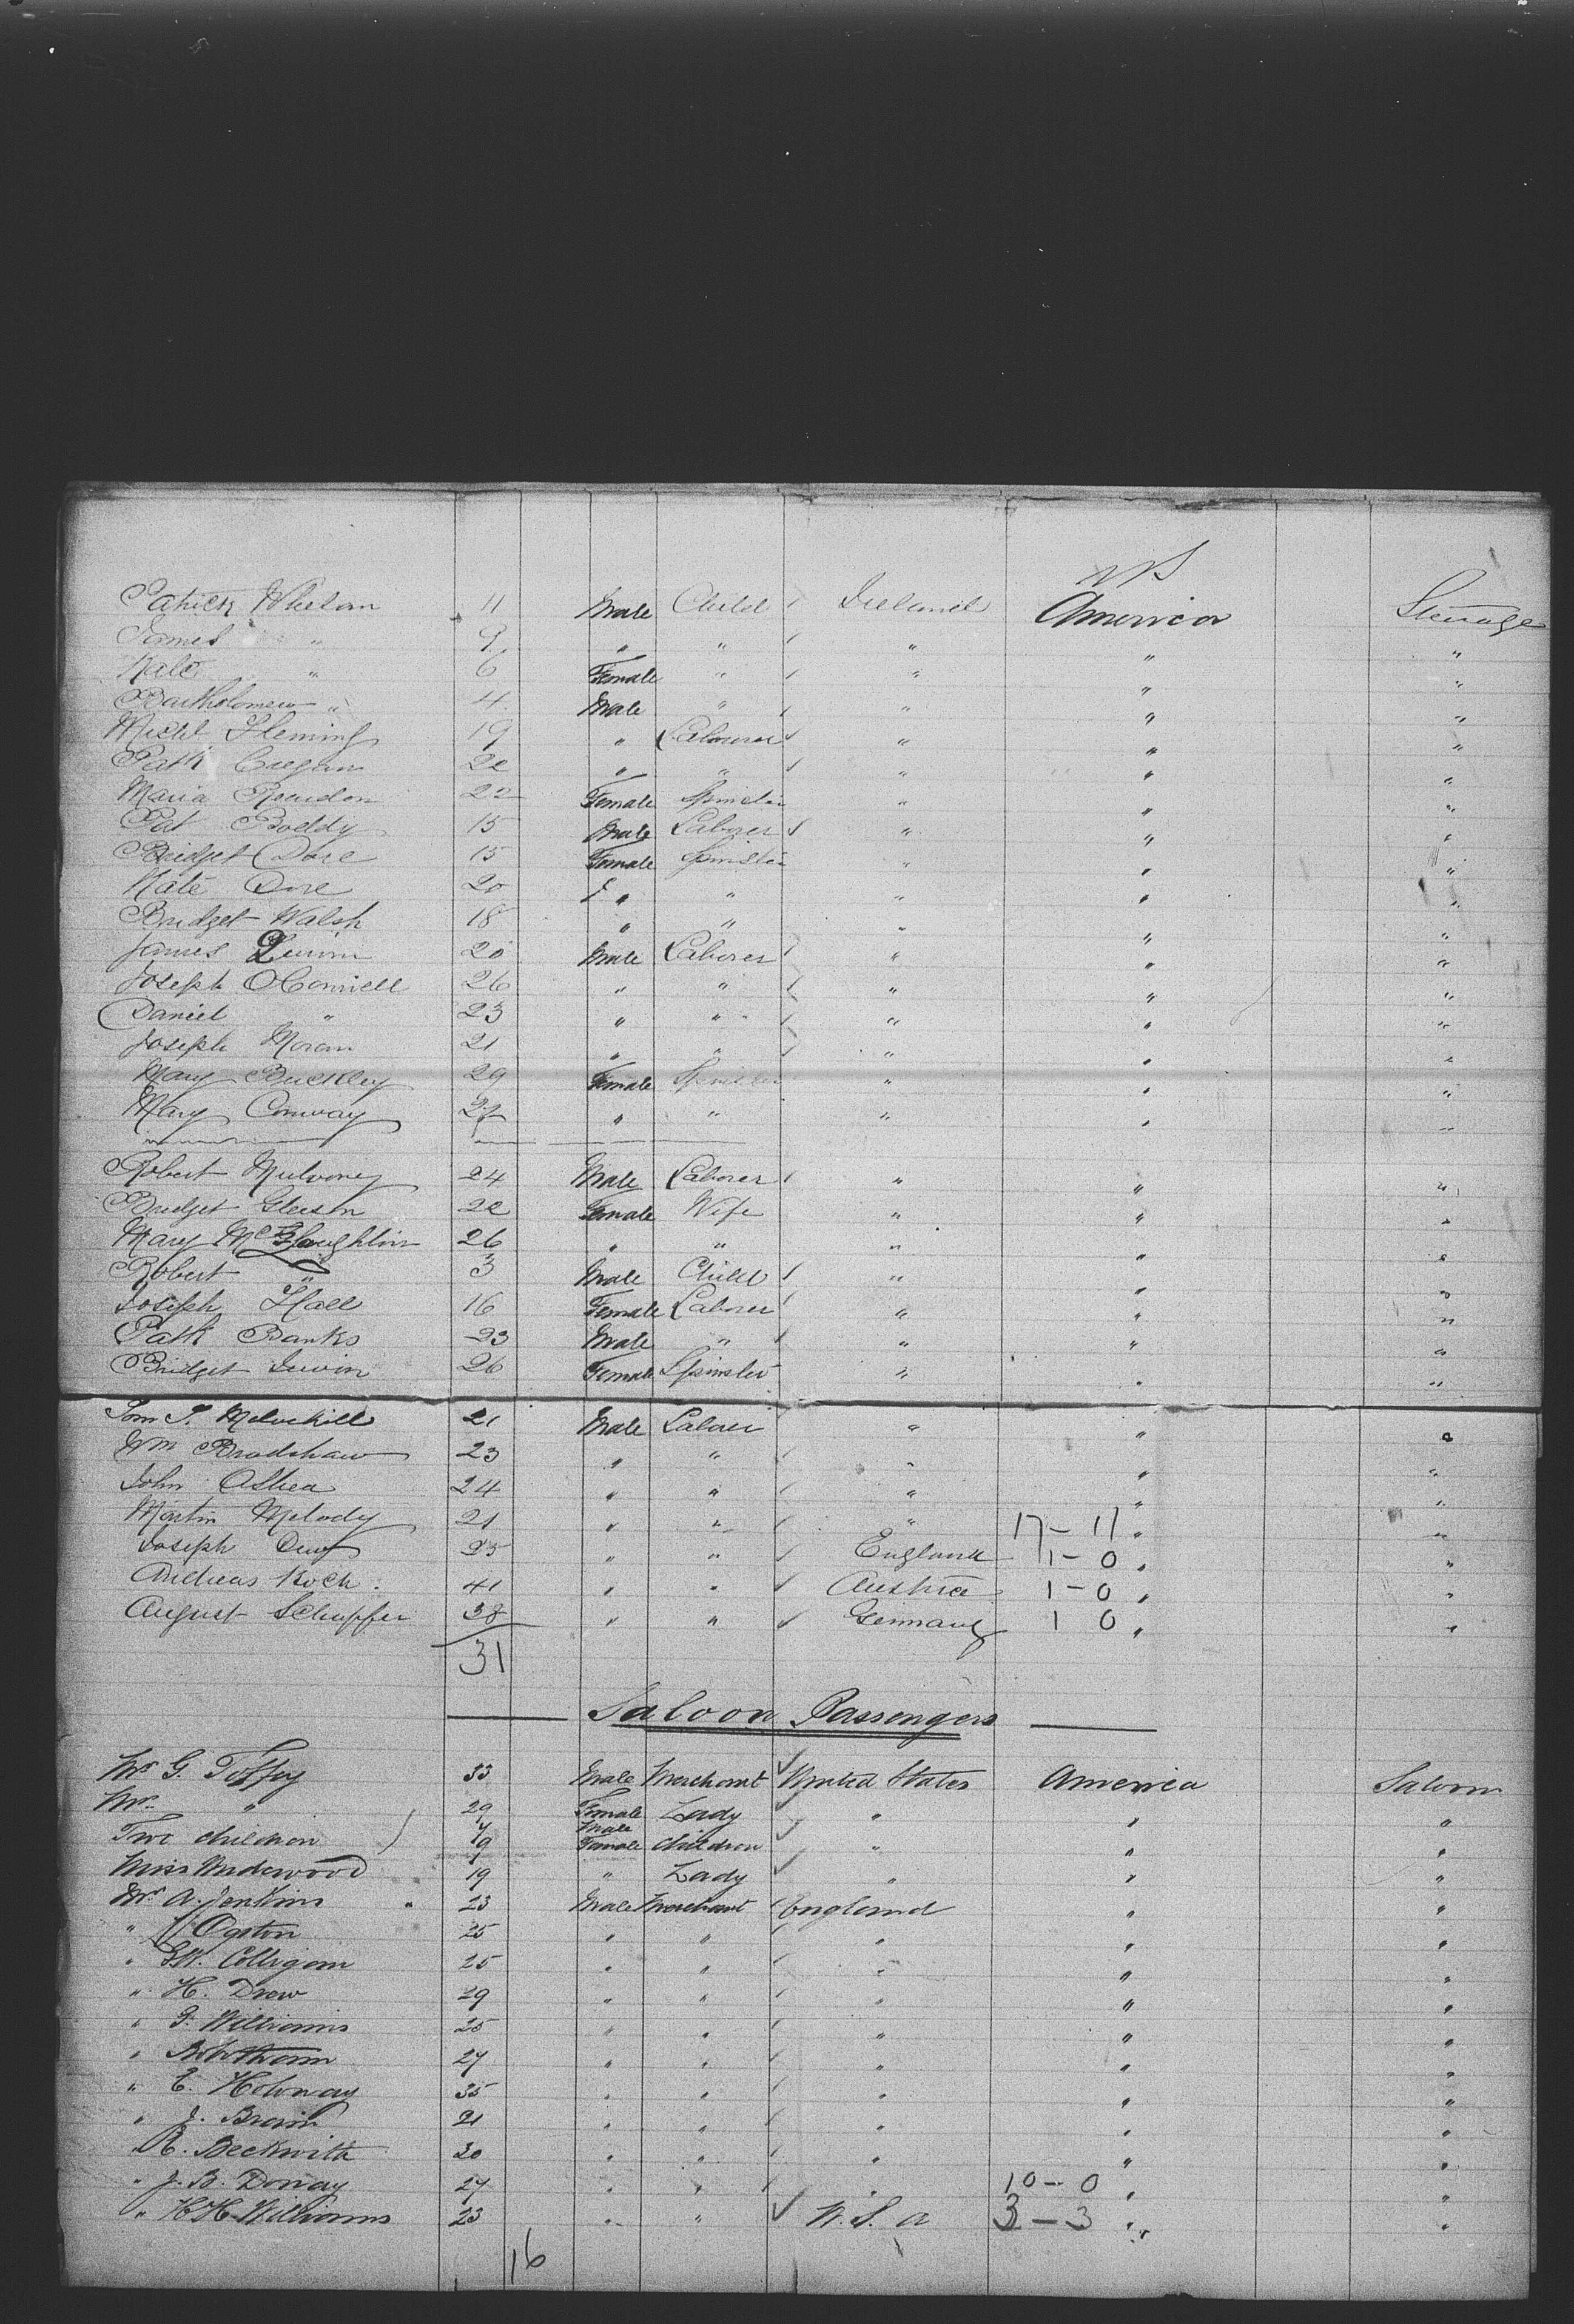 US
Patrick Whelan 11 Male Child Ireland America Steerage
James " 9 " " " " "
Kate " 6 Female " " " "
Bartholomew " 4 Male " " " "
Michl Fleming 19 " Labourer " " "
Patk Cregan 22 " " " " "
Maria Reardon 22 Female Spinster " " "
Pat Boddy 15 Male Laborer " " "
Bridget Dore 15 Female Spinster " " "
Kate Dore 20 " " " " "
Bridget Walsh 18 " " " " "
James 20 Male Laborer " " "
Joseph OConnell 26 " " " " "
Daniel " 23 " " " " "
Joseph Moran 21 " " " " "
Mary Buckley 29 Female Spinster " " "
Mary Conway 27 " " " "
Robert Mulvoney 24 Male Laborer " " "
Bridget Gleeson 22 Female Wife " " "
Mary McLoughlin 26 " " " " "
Robert " 3 Male Child " " "
Joseph Hall 16 Female Laborer " " "
Patk Banks 23 Male " " " "
Bridget Irwin 26 Female Spinster " " "
Tom P. 21 Male Laborer " " "
Wm Bradshaw 23 " " " " "
John OShea 24 " " " " "
Martin Melody 21 " " " 17-11 " "
Joseph 25 " " England 1-0 " "
Andreas Koch 41 " " Austria 1-0 " "
August Schupfer 38 " " Germany 1 0 " "
31
Saloon Passengers
Mr G. Toffey 33 Male Merchant United States America Saloon
Mrs " 29 Female Lady " " "
Two children 7 Male
9 Female children " " "
Miss Underwood 19 " Lady " " "
Mr A. Jenkins 23 Male Merchant England " "
" Ogston 25 " " " " "
" Colligan 25 " " " " "
" H. Drew 29 " " " " "
" G. Williams 25 " " " " "
" 27 " " " " "
" E. Holway 35 " " " " "
" J. Brain 21 " " " " "
" R. Beckwith 30 " " " " "
" J. B. Dorvay 27 " " " 10-0 " "
" H H Williams 23 " " U. S. A 3-3 " "
16